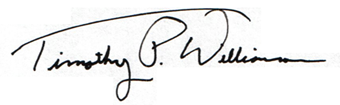 Timothy P. Williamson